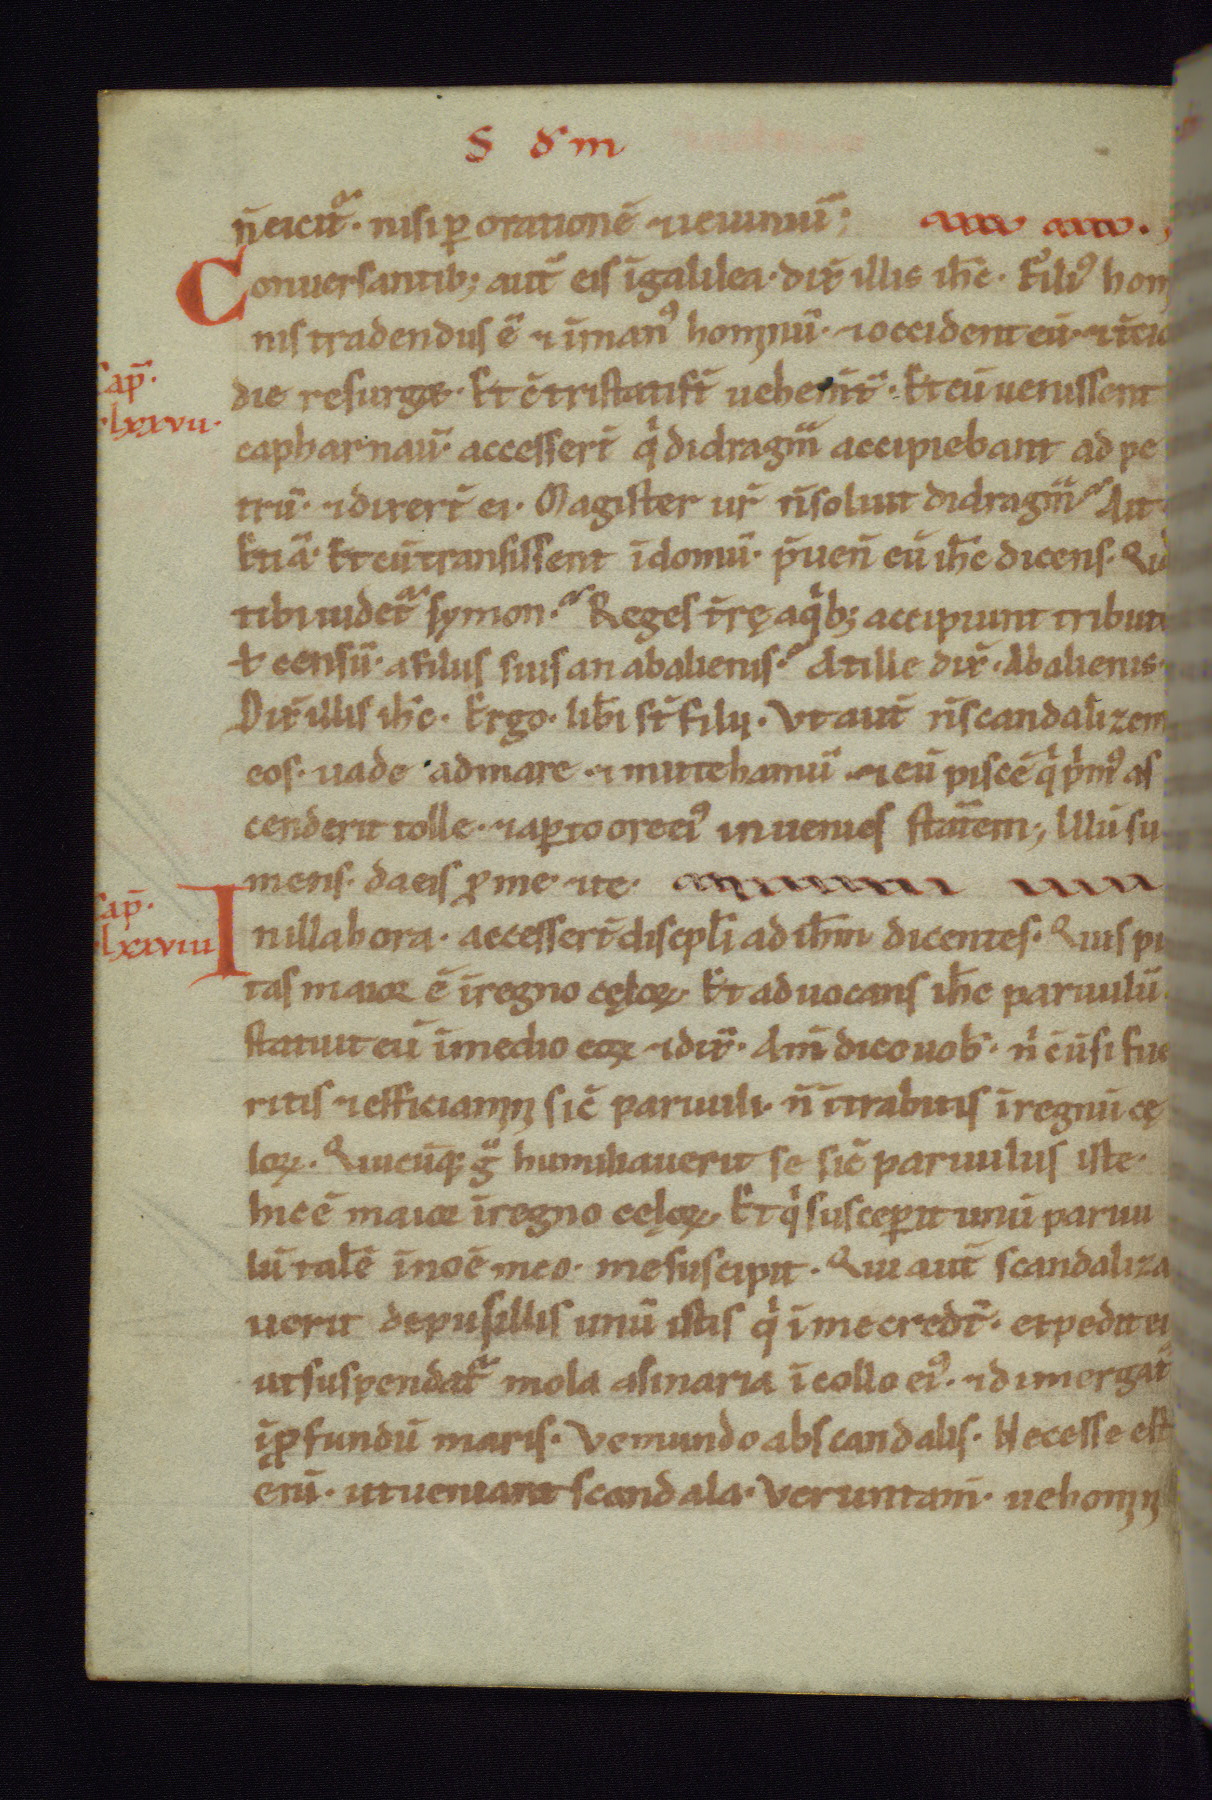 S dm
n̄ eicit̄. nisi ꝑ orationē ⁊ ieiuniū;
Conuersantib; aut̄ eis ī galilea. dix̄ illis ih̄c. Filiꝰ homi
nis tradendus ē ⁊ ī manꝰ hominū. ⁊ occident eū. ⁊ t̄cia
die resurget. Et c̄tristati st̄ uehem̄t̄. Et cū uenissent
Cap̄.
lxxvii.
capharnaū. accessert̄ q̄ didragm̄ accipiebant ad pe
trū. ⁊ dixert̄ ei. Magister ur̄ n̄ soluit didragm̄. Ait.
Etiā. Et cū transissent ī domū. p̄uen̄ eū ih̄c dicens. Quid
tibi uidet̄ symon. Reges t̄rę a qb; accipiunt tributū
ł censū. a filiis suis an ab alienis. At ille dix̄. Ab alienis.
Dix̄ illis ih̄c. Ergo. lib̄i st̄ filii. Vt aut̄ n̄ scandalizem
eos. uade ad mare. ⁊ mitte hamū. ⁊ eū piscē q̄ p̄mꝰ as
cenderit tolle. ⁊ aꝑto ore eiꝰ inuenies stat̄em; Illū su
mens. da eis ꝓ me. ⁊ te.
Cap̄.
lxxviii
In illa hora. accessert̄ discipl̄i ad ih̄m dicentes. Quis pu
tas maior ē ī regno cęloꝝ. Et aduocans ih̄c paruulū.
statuit eū ī medio eoꝝ ⁊ dix̄. Am̄ dico uob̄. n̄ c̄ūsi fue
ritis ⁊ efficiamini sic̄ paruuli. n̄ īt̄rabitis ī regnū cę
loꝝ. Quicūq; g̊ humiliauerit se sic̄ paruulus iste.
hic ē maior ī regno cęloꝝ. Et q̄ susceꝑit unū paruu
lū talē ī noē meo. me suscipit. Qui aut̄ scandaliza
uerit de pusillis unū istis q̄ ī me credt̄. expedit ei
ut suspendat̄ mola asinaria ī collo eiꝰ. ⁊ dimergat̄
ī ꝓfundū maris. Ve mundo ab scandalis. Necesse est
enī. ut ueniant scandala. Veruntam̄. ue homini